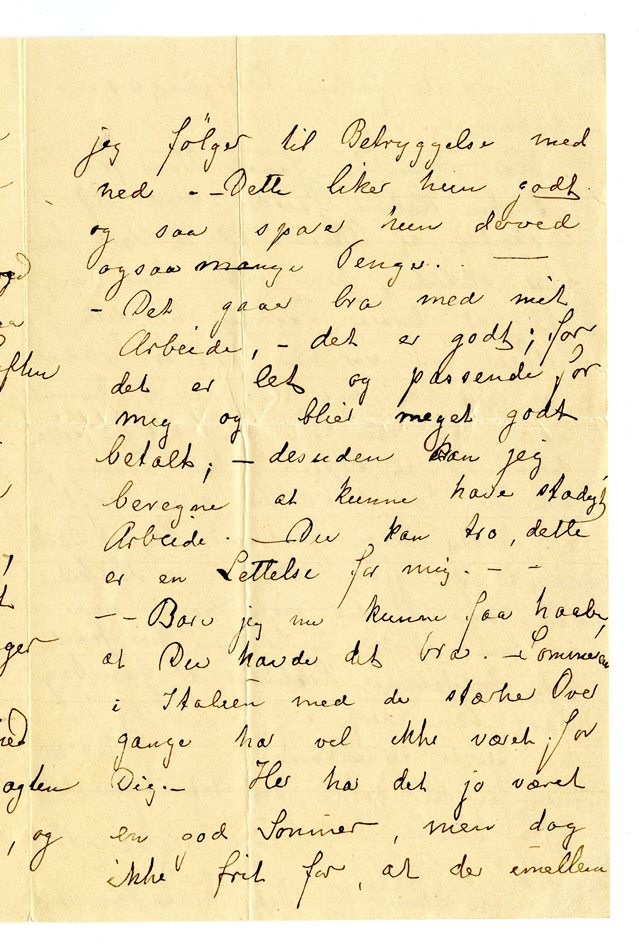 jeg følger til Betryggelse med
ned - - Dette liker hun godt.
og saa sparer hun derved
ogsaa mange Penge. —
- Det gaar bra med mit
Arbeide, - det er godt; for
det er let og passende for
mig og blier meget godt
betalt; - desuden kan jeg
beregne at kunne have stadigt
Arbeide. - Du kan tro, dette
er en Lettelse for mig. - -
- - Bare jeg nu kunne faa haabe,
at Du havde det bra. - Sommeren
i Italien med de stærke Over
gange har vel ikke været for
Dig. - Her har det jo været
en god Sommer, men dog
ikke frit for, at de imellem
ften
ger
agten
, og